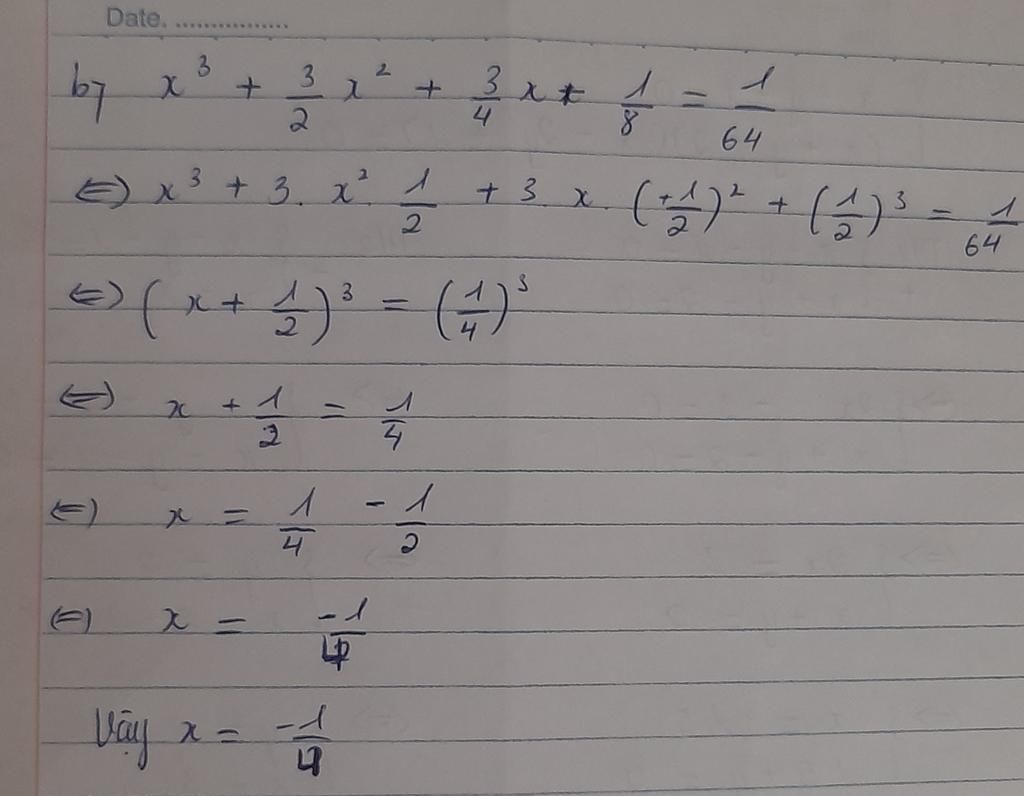 Date. ................
b) x³ + 3/2 x² + 3/4 x + 1/8 = 1/64
⇔) x³ + 3. x². 1/2 + 3 x. (+1/2)² + (1/2)³ = 1/64
⇔) (x + 1/2)³ = (1/4)³
⇔) x + 1/2 = 1/4
⇔) x = 1/4 - 1/2
⇔) x = -1/4
Vậy x = -1/4